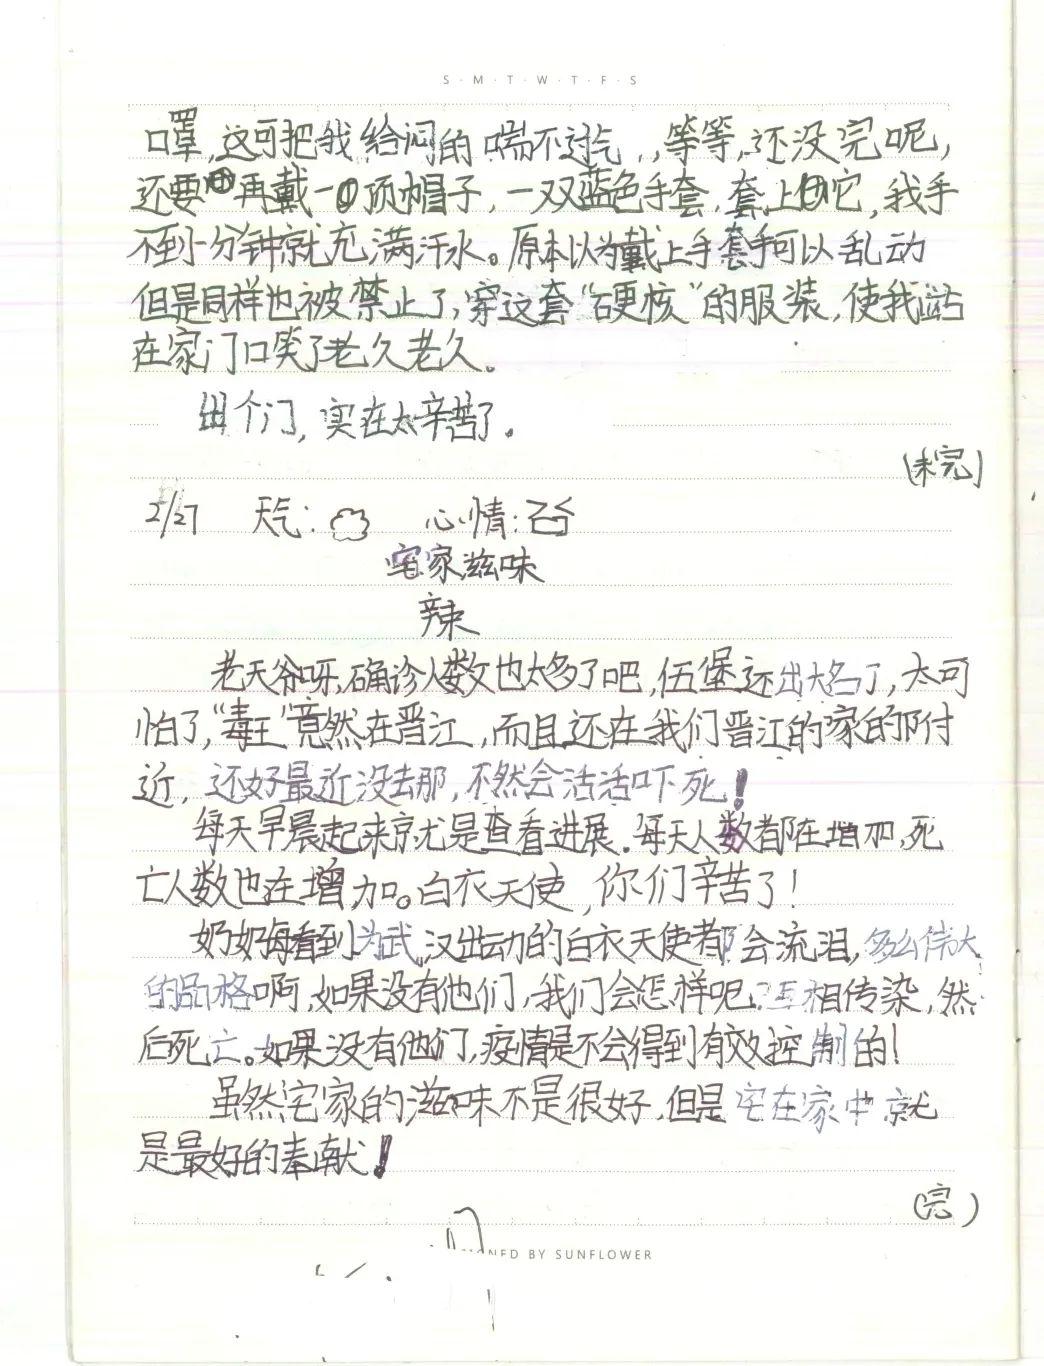 S·M·T·W·T·F·S
口罩,这可把我给闷的喘不过气,,等等,还没完呢,
还要再戴一顶帽子,一双蓝色手套,套上它,我手
不到一分钟就充满汗水。原本以为戴上手套手可以乱动
但是同样也被禁止了,穿这套“硬核”的服装,使我站
在家门口笑了老久老久。
出个门,实在太辛苦了。
(未完)
2/27 天气: 心情:
宅家滋味
辣
老天爷呀,确诊人数也太多了吧,伍堡还出大名了,太可
怕了,“毒王”竟然在晋江,而且还在我们晋江的家的附
近,还好最近没去那,不然会活活吓死!
每天早晨起来就是查看进展.每天人数都在增加,死
亡人数也在增加。白衣天使,你们辛苦了!
奶奶每看到为武汉出动的白衣天使都会流泪,多么伟大
的品格啊,如果没有他们,我们会怎样呢?互相传染,然
后死亡。如果没有他们,疫情是不会得到有效控制的!
虽然宅家的滋味不是很好,但是宅在家中就
是最好的奉献!
(完)
NED BY SUNFLOWER